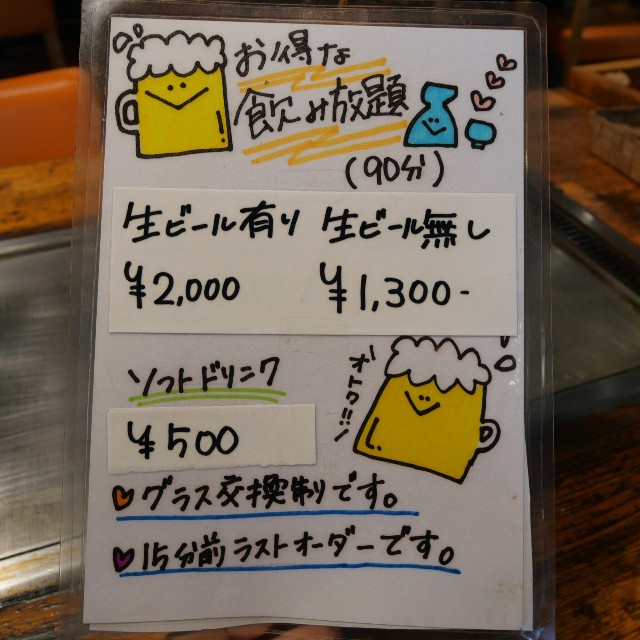 お得な
飲み放題
(90分)
生ビール有り 生ビール無し
¥2,000 ¥1,300-
ソフトドリンク
¥500
オトク!!
グラス交換制りです。
15分前ラストオーダーです。